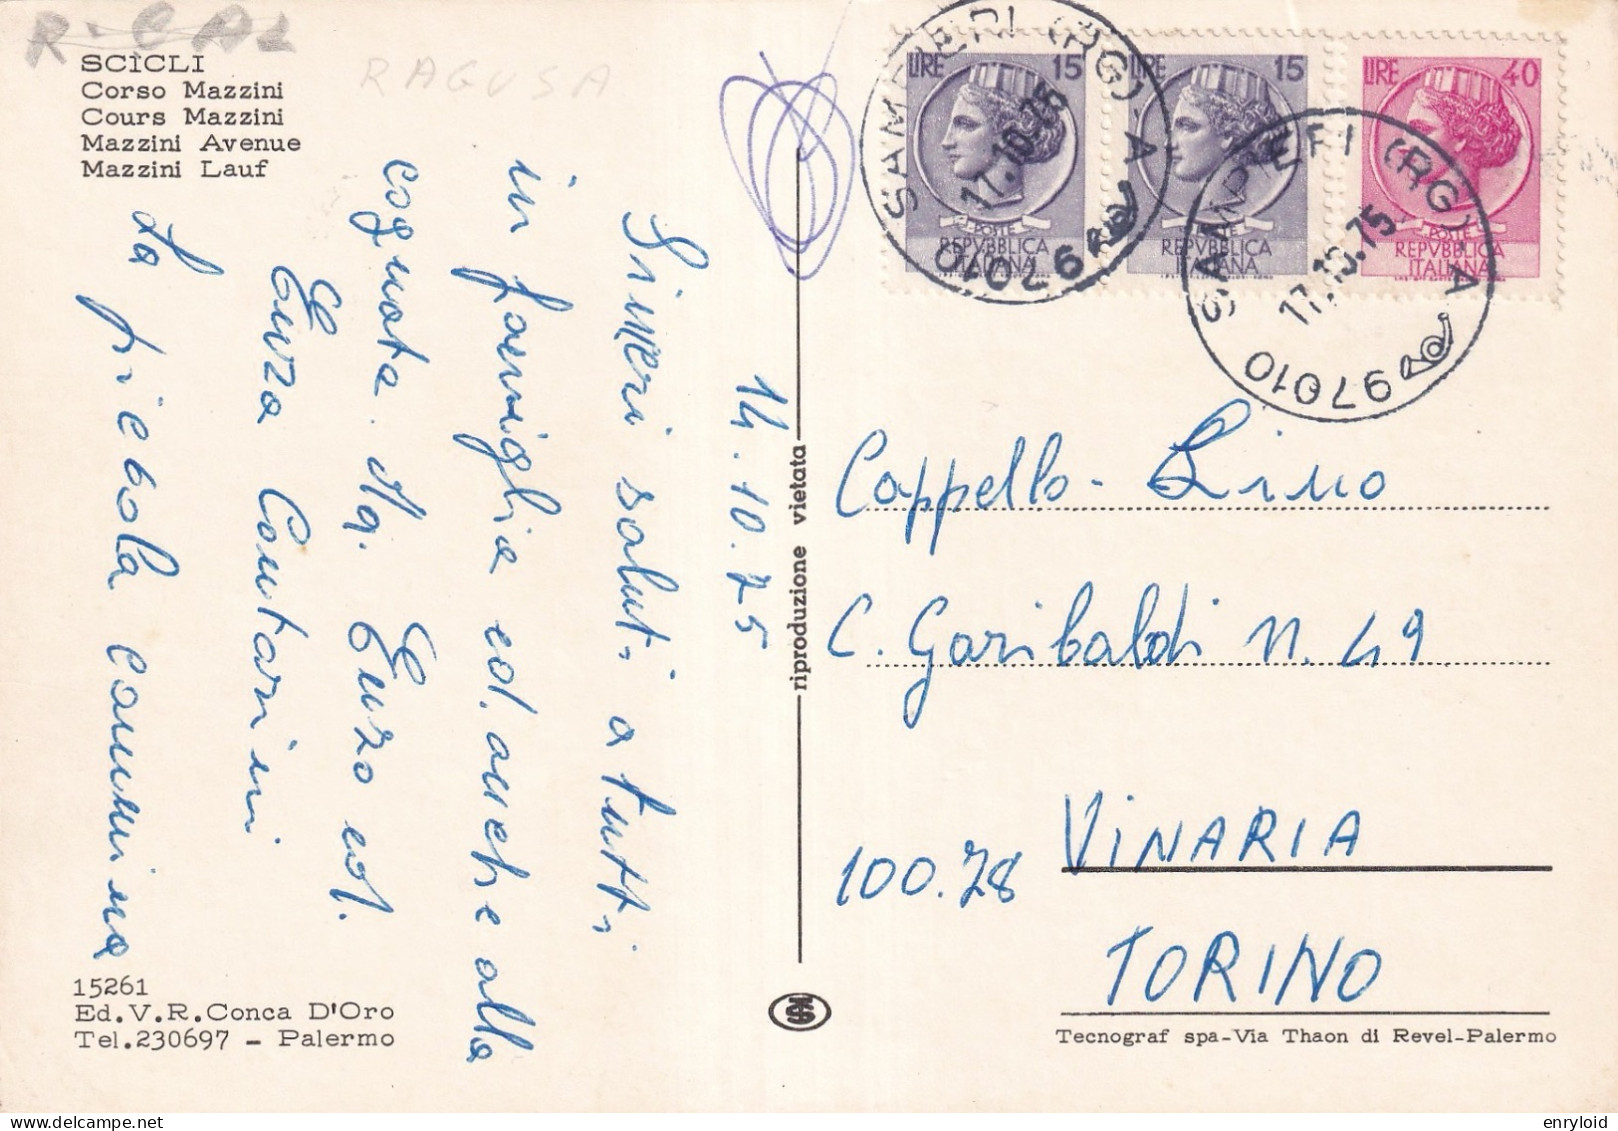 R. CAL
SCÌCLI
Corso Mazzini
Cours Mazzini
Mazzini Avenue
Mazzini Lauf
RAGUSA
14.10.75
Sinceri saluti a tutti
in famiglia ed anche alla
cognata. Enzo ed.
Enza Contarini
La piccola
15261
Ed.V.R.Conca D'Oro
Tel.230697 - Palermo
riproduzione vietata
LIRE 15
POSTE
REPVBBLICA
ITALIANA
LIRE 15
POSTE
REPVBBLICA
ITALIANA
LIRE 40
POSTE
REPVBBLICA
ITALIANA
SAMPIERI (RG) - A
17.10.75
97010
SAMPIERI (RG) - A
17.10.75
97010
Cappello - Lino
C. Garibaldi n. 49
VINARIA
100.78
TORINO
Tecnograf spa-Via Thaon di Revel-Palermo
enryloid